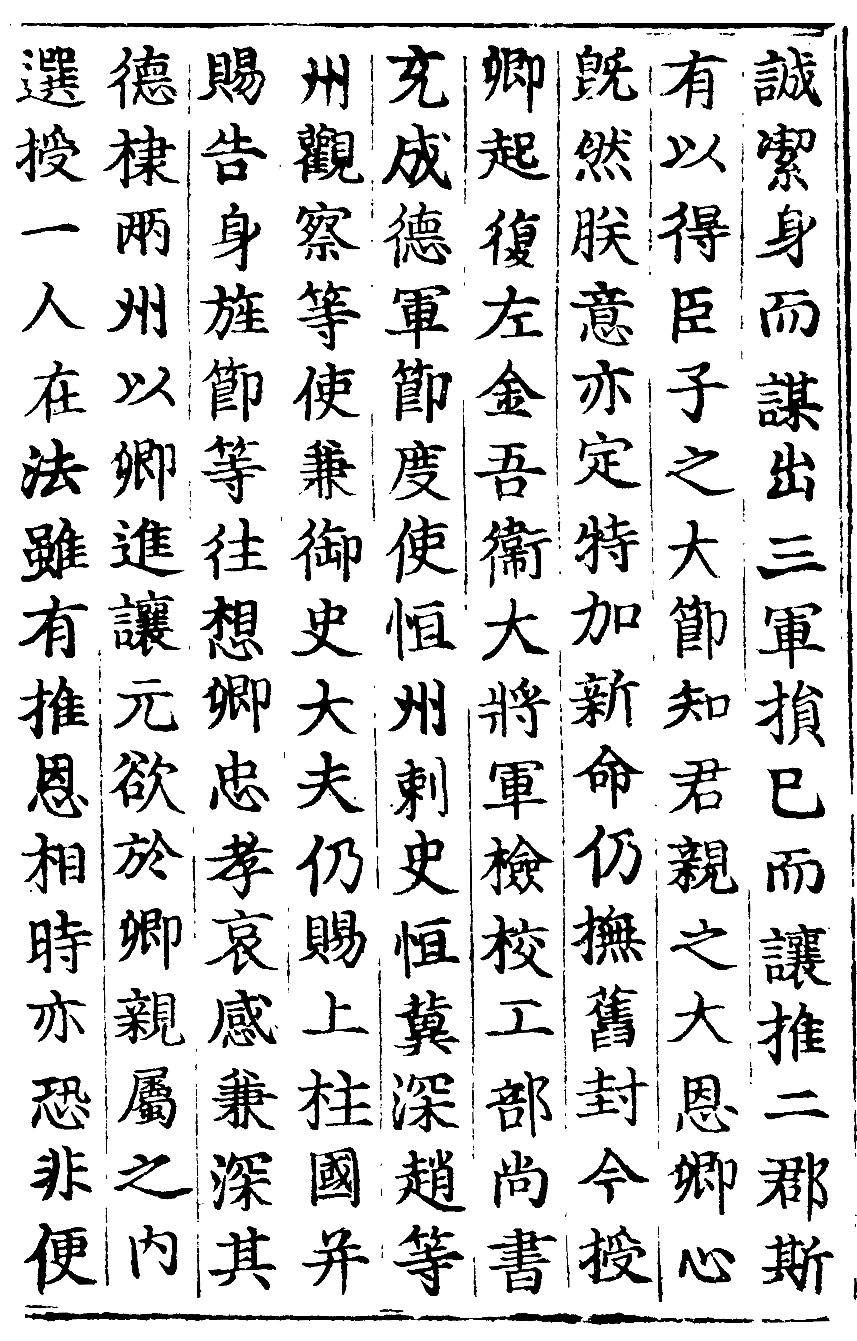 誠潔身而謀出三軍損巳而讓推二郡斯
有以得臣子之大節知君親之大恩卿心
旣然朕意亦定特加新命仍撫舊封今授
卿起復左金吾衞大將軍檢校工部尚書
充成德軍節度使恒州刺史恒冀深趙等
州觀察等使兼御史大夫仍賜上柱國并
賜告身旌節等往想卿忠孝哀感兼深其
德棣兩州以卿進讓元欲於卿親屬之内
選授一人在法雖有推恩相時亦恐非便